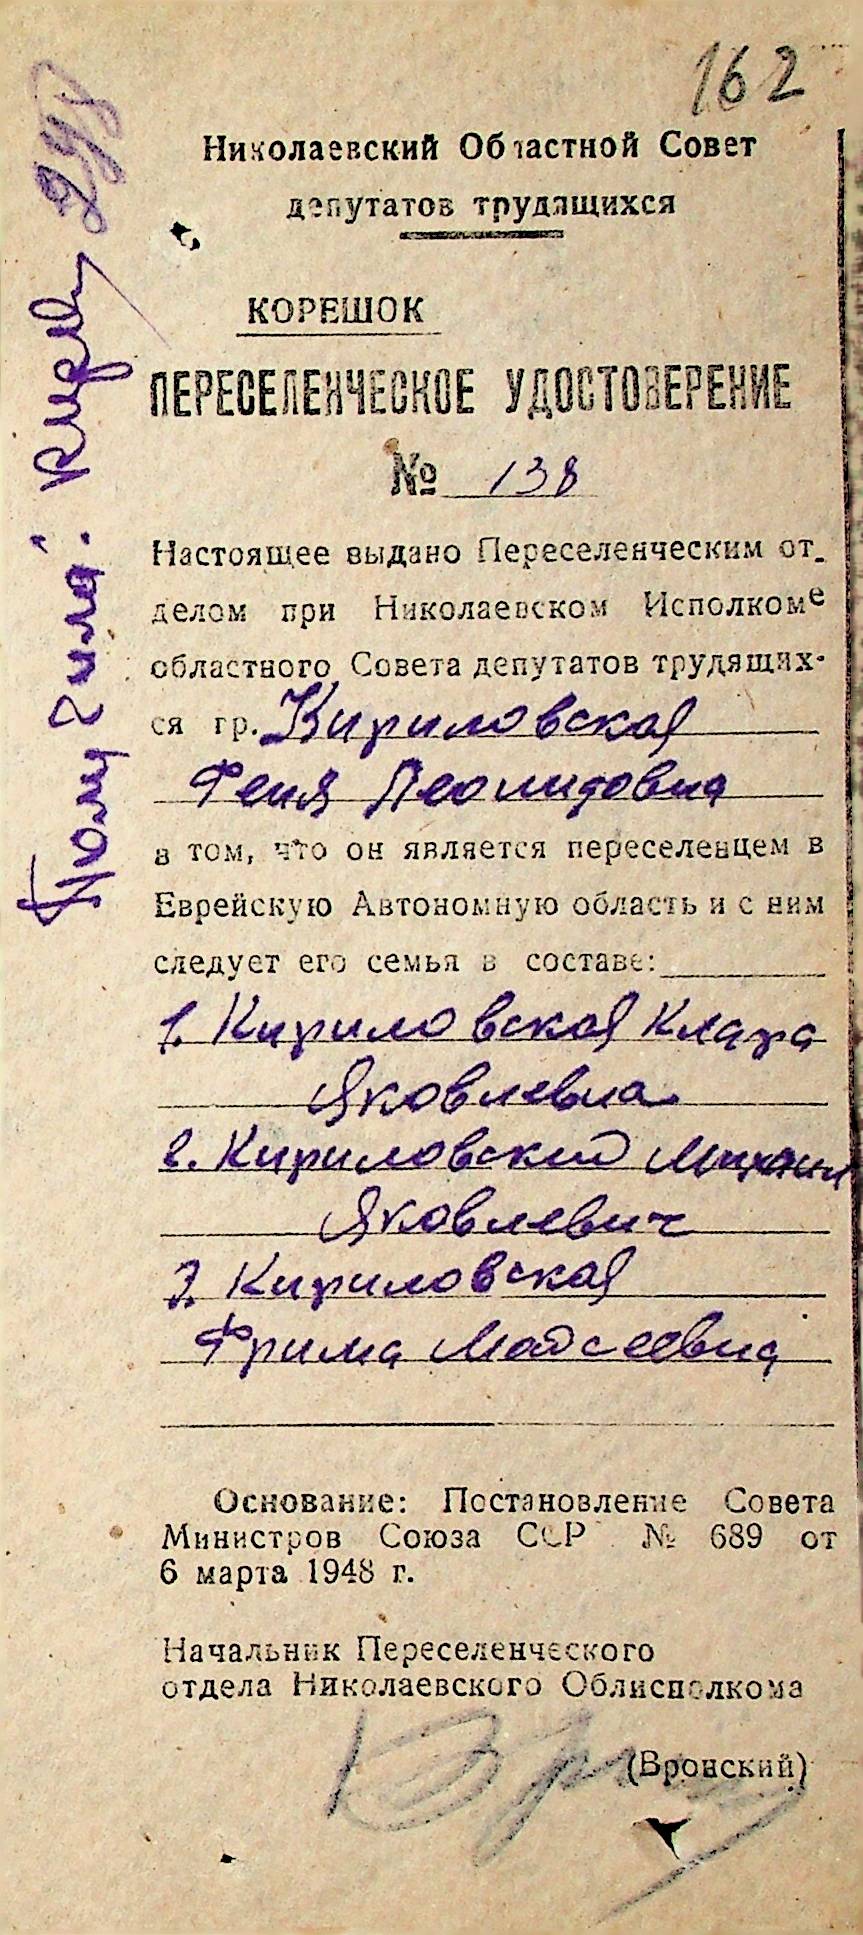 162
Николаевский Областной Совет
депутатов трудящихся
КОРЕШОК
ПЕРЕСЕЛЕНЧЕСКОЕ УДОСТОВЕРЕНИЕ
№ 138
Настоящее выдано Переселенческим от-
делом при Николаевском Исполкоме
областного Совета депутатов трудящих-
ся гр. Кириловская
Феня Леонидовна
в том, что он является переселенцем в
Еврейскую Автономную область и с ним
следует его семья в составе:
1. Кириловская Клара
Яковлевна
2. Кириловский Михаил
Яковлевич
3. Кириловская
Фрима Мойсеевна
Основание: Постановление Совета
Министров Союза ССР № 689 от
6 марта 1948 г.
Начальник Переселенческого
отдела Николаевского Облисполкома
(Вронский)
Получила: